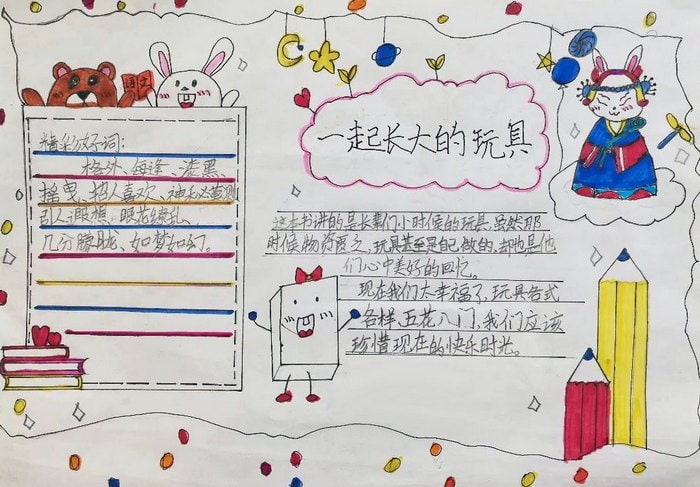 语文
精彩好词:
格外、每逢、漆黑、
摇曳、招人喜欢、神秘莫测
引人遐想、眼花缭乱、
几分朦胧、如梦如幻。
一起长大的玩具
这本书讲的是长辈们小时候的玩具,虽然那
时候物资匮乏、玩具甚至是自己做的,却也是他
们心中美好的回忆。
现在我们太幸福了,玩具各式
各样、五花八门,我们应该
珍惜现在的快乐时光。